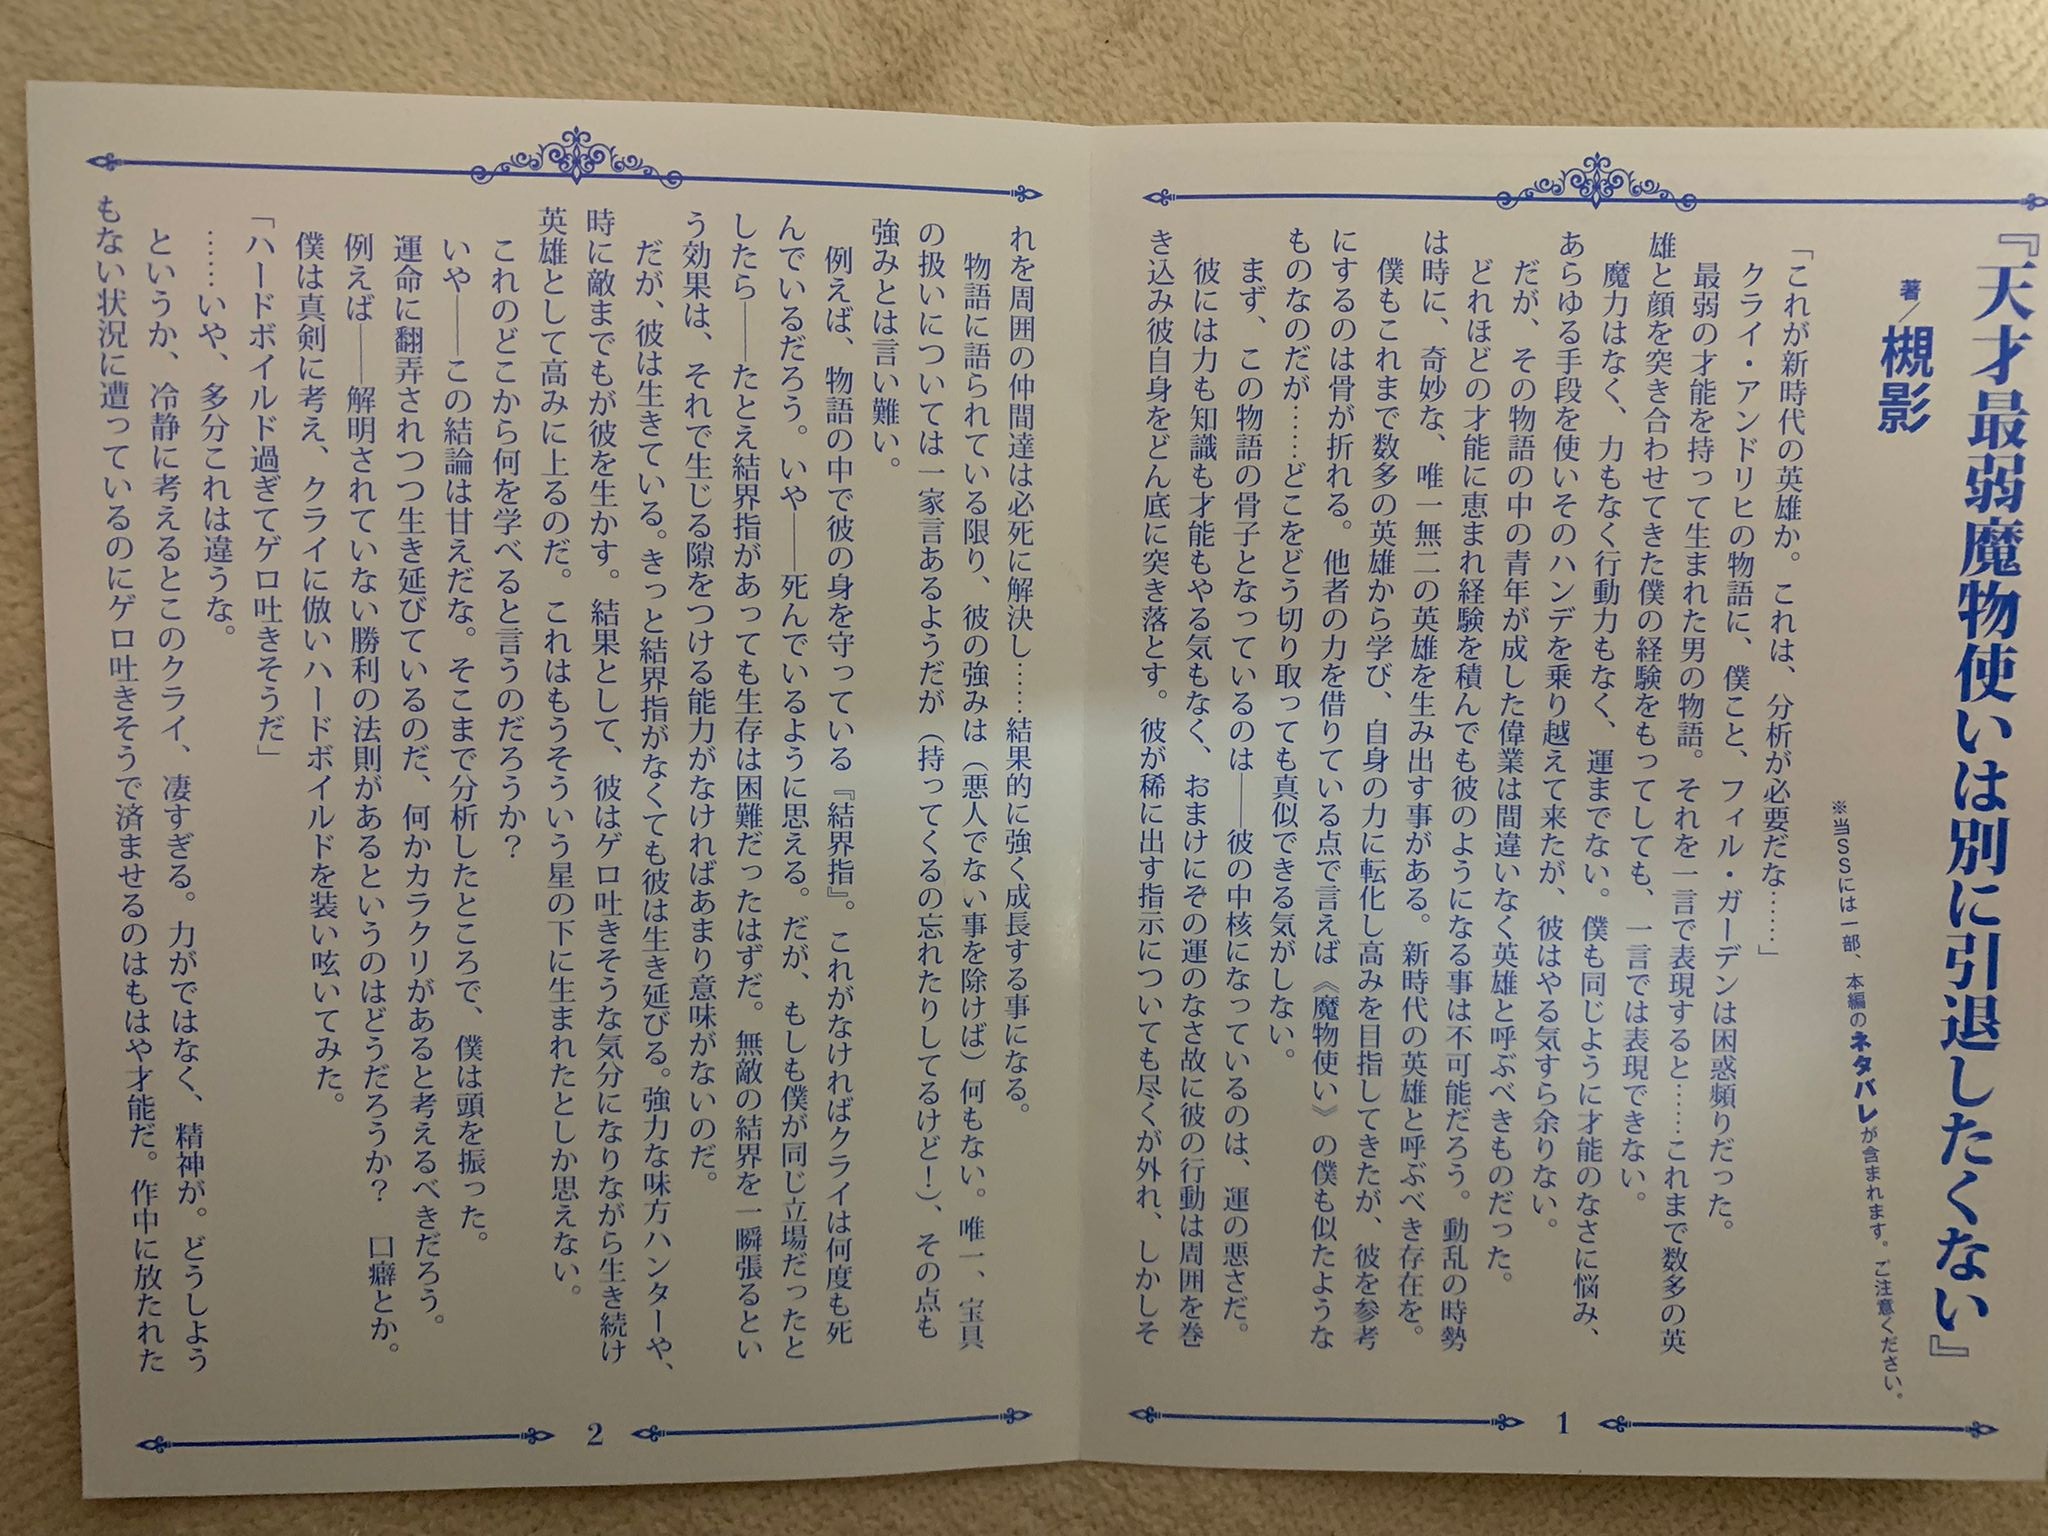 『天才最弱魔物使いは別に引退したくない』
著/槻影
※当SSには一部、本編のネタバレが含まれます。ご注意ください。
「これが新時代の英雄か。これは、分析が必要だな……」
クライ・アンドリヒの物語に、僕こと、フィル・ガーデンは困惑頻りだった。
最弱の才能を持って生まれた男の物語。それを一言で表現すると……これまで数多の英
雄と顔を突き合わせてきた僕の経験をもってしても、一言では表現できない。
魔力はなく、力もなく行動力もなく、運までない。僕も同じように才能のなさに悩み、
あらゆる手段を使いそのハンデを乗り越えて来たが、彼はやる気すら余りない。
だが、その物語の中の青年が成した偉業は間違いなく英雄と呼ぶべきものだった。
どれほどの才能に恵まれ経験を積んでも彼のようになる事は不可能だろう。動乱の時勢
は時に、奇妙な、唯一無二の英雄を生み出す事がある。新時代の英雄と呼ぶべき存在を。
僕もこれまで数多の英雄から学び、自身の力に転化し高みを目指してきたが、彼を参考
にするのは骨が折れる。他者の力を借りている点で言えば《魔物使い》の僕も似たような
ものなのだが……どこをどう切り取っても真似できる気がしない。
まず、この物語の骨子となっているのは――彼の中核になっているのは、運の悪さだ。
彼には力も知識も才能もやる気もなく、おまけにその運のなさ故に彼の行動は周囲を巻
き込み彼自身をどん底に突き落とす。彼が稀に出す指示についても尽くが外れ、しかしそ
1
れを周囲の仲間達は必死に解決し……結果的に強く成長する事になる。
物語に語られている限り、彼の強みは（悪人でない事を除けば）何もない。唯一、宝具
の扱いについては一家言あるようだが（持ってくるの忘れたりしてるけど！）、その点も
強みとは言い難い。
例えば、物語の中で彼の身を守っている『結界指』。これがなければクライは何度も死
んでいるだろう。いや――死んでいるように思える。だが、もしも僕が同じ立場だったと
したら――たとえ結界指があっても生存は困難だったはずだ。無敵の結界を一瞬張るとい
う効果は、それで生じる隙をつける能力がなければあまり意味がないのだ。
だが、彼は生きている。きっと結界指がなくても彼は生き延びる。強力な味方ハンターや、
時に敵までもが彼を生かす。結果として、彼はゲロ吐きそうな気分になりながら生き続け
英雄として高みに上るのだ。これはもうそういう星の下に生まれたとしか思えない。
これのどこから何を学べると言うのだろうか？
いや――この結論は甘えだな。そこまで分析したところで、僕は頭を振った。
運命に翻弄されつつ生き延びているのだ、何かカラクリがあると考えるべきだろう。
例えば――解明されていない勝利の法則があるというのはどうだろうか？　口癖とか。
僕は真剣に考え、クライに倣いハードボイルドを装い呟いてみた。
「ハードボイルド過ぎてゲロ吐きそうだ」
……いや、多分これは違うな。
というか、冷静に考えるとこのクライ、凄すぎる。力がではなく、精神が。どうしよう
もない状況に遭っているのにゲロ吐きそうで済ませるのはもはや才能だ。作中に放たれた
2